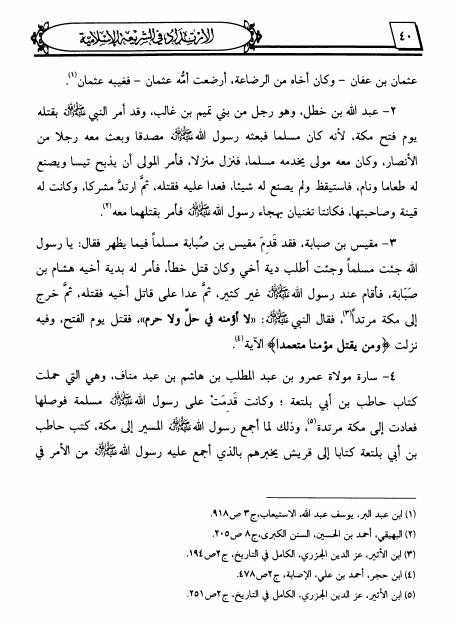 ٤٠
الارتداد في الشريعة الإسلامية
عثمان بن عفان – وكان أخاه من الرضاعة، أرضعت أمُّه عثمان – فغيبه عثمان(١).
٢- عبد الله بن خطل، وهو رجل من بني تميم بن غالب، وقد أمر النبي ﷺ بقتله
يوم فتح مكة، لأنه كان مسلما فبعثه رسول الله ﷺ مصدقا وبعث معه رجلا من
الأنصار، وكان معه مولى يخدمه مسلما، فنزل منزلا، فأمر المولى أن يذبح تيسا ويصنع
له طعاما ونام، فاستيقظ ولم يصنع له شيئا، فعدا عليه فقتله، ثمَّ ارتدَّ مشركا، وكانت له
قينة وصاحبتها، فكانتا تغنيان بهجاء رسول الله ﷺ فأمر بقتلهما معه(٢).
٣- مقيس بن صبابة، فقد قَدِمَ مقيس بن صُبابة مسلماً فيما يظهر فقال: يا رسول
الله جئت مسلماً وجئت أطلب دية أخي وكان قتل خطأ، فأمر له بدية أخيه هشام بن
صَبَابَة، فأقام عند رسول الله ﷺ غير كثير، ثمَّ عدا على قاتل أخيه فقتله، ثمَّ خرج
إلى مكة مرتداً(٣)، فقال النبي ﷺ: «لا أؤمنه في حلّ ولا حرم»، فقتل يوم الفتح، وفيه
نزلت ﴿ومن يقتل مؤمنا متعمدا﴾ الآية(٤).
٤- سارة مولاة عمرو بن عبد المطلب بن هاشم بن عبد مناف، وهي التي حملت
كتاب حاطب بن أبي بلتعة ؛ وكانت قَدِمَتْ على رسول الله ﷺ مسلمة فوصلها
فعادت إلى مكة مرتدة(٥)، وذلك لما أجمع رسول الله ﷺ المسير إلى مكة، كتب حاطب
بن أبي بلتعة كتابا إلى قريش يخبرهم بالذي أجمع عليه رسول الله ﷺ من الأمر في
(١) ابن عبد البر، يوسف عبد الله، الاستيعاب،ج٣ ص٩١٨.
(٢) البيهقي، أحمد بن الحسين، السنن الكبرى،ج٨ ص٢٠٥.
(٣) ابن الأثير، عز الدين الجزري، الكامل في التاريخ، ج٢ص١٩٤.
(٤) ابن حجر، أحمد بن علي، الإصابة، ج٢ص٤٧٨.
(٥) ابن الأثير، عز الدين الجزري، الكامل في التاريخ، ج٢ص٢٥١.